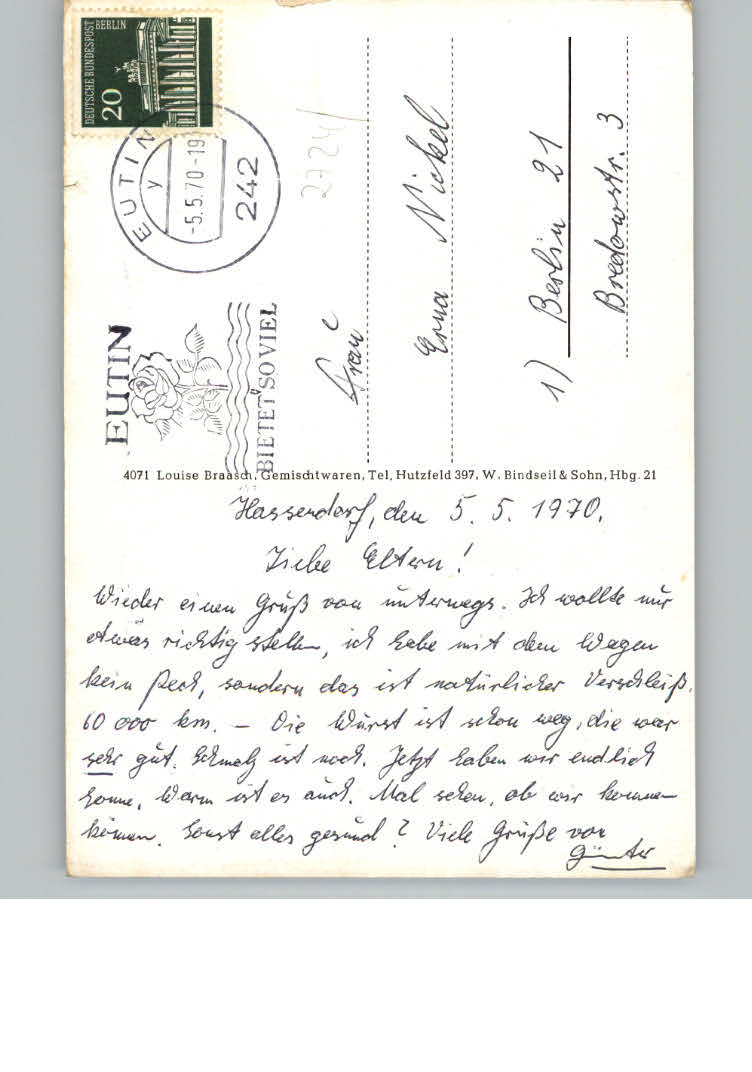 DEUTSCHE BUNDESPOST
BERLIN
20
EUTIN
y
-5.5.70-19
242
EUTIN
BIETET SO VIEL
2724/
Frau
Erna Nickel
1) Berlin 21
Bredowstr. 3
4071 Louise Braasch, Gemischtwaren, Tel. Hutzfeld 397, W. Bindseil & Sohn, Hbg. 21
Hassendorf, den 5. 5. 1970.
Liebe Eltern!
Wieder einen Gruß von unterwegs. Ich wollte nur
etwas richtig stellen, ich habe mit dem Wagen
kein Pech, sondern das ist natürlicher Verschleiß,
60 000 km. – Die Wurst ist schon weg, die war
sehr gut. Schmalz ist noch. Jetzt haben wir endlich
Sonne, warm ist es auch. Mal sehen, ob wir kommen
können. Sonst alles gesund? Viele Grüße von
Günter